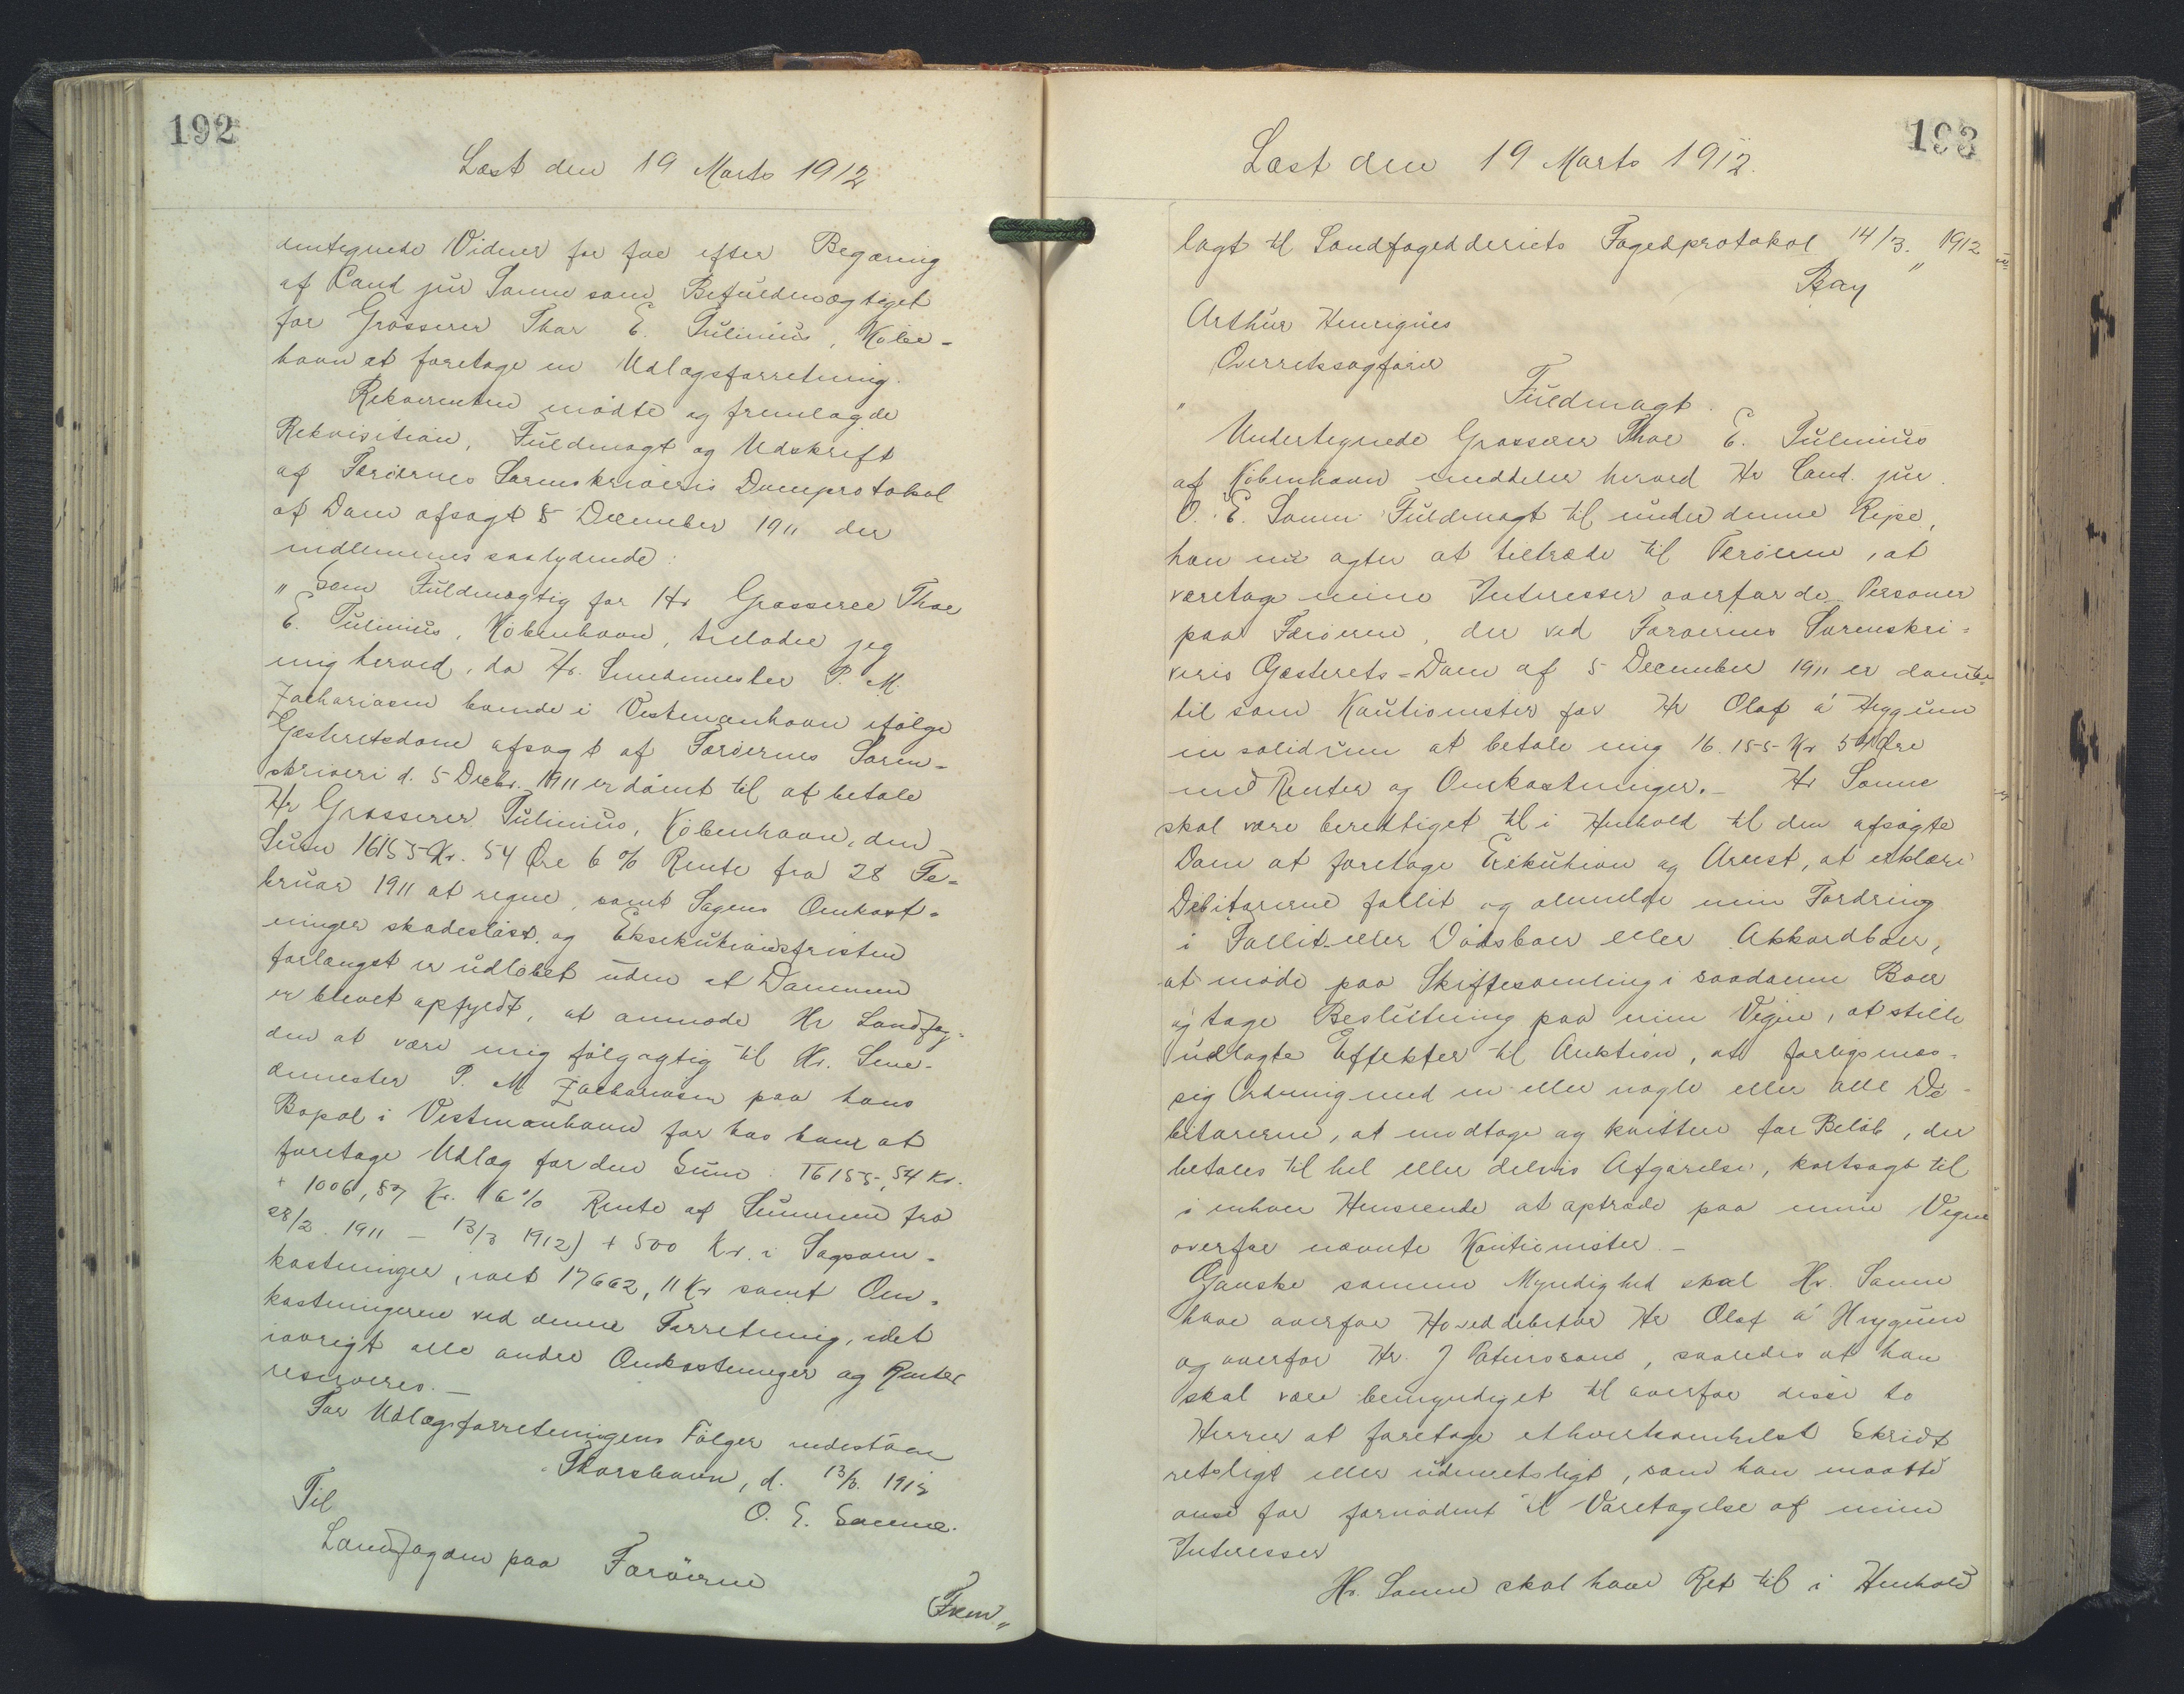 192
Læst den 19 Marts 1912
dertegnede Vidner for fra efter Begæring
af Cand jur Sonne som Befuldmægtiget
for Grosserer Thor E. Tulinius, Köben-
havn at foretage en Udlægsforretning.
Rekvirenten mödte og fremlagde
Rekvisition, Fuldmagt og Udskrift
af Færöernes Sorenskriveris Domprotokol
af Dom afsagt 5 December 1911 der
indlemmes saalydende:
"Som Fuldmægtig for Hr Grosserer Thor
E. Tulinius, Köbenhavn, tillader jeg
mig herved, da Hr. Smedemester P. M.
Zachariasen boende i Vestmanhavn ifölge
Gæsteretsdom afsagt af Færöernes Soren-
skriveri d. 5 Decbr. 1911 er dömt til at betale
Hr Grosserer Tulinius, Köbenhavn, den
Sum 16155 Kr. 54 Öre 6 % Rente fra 28 Fe-
bruar 1911 at regne, samt Sagens Omkost-
ninger skadeslöst, og Eksekutionsfristen
forlængst er udlöbet uden at Dommen
er blevet opfyldt, at anmode Hr Landfog-
den at være mig fölgagtig til Hr. Sme-
demester P. M Zachariasen paa hans
Bopæl i Vestmanhavn for hos ham at
foretage Udlæg for den Sum: 16155,54 Kr.
+ 1006,57 Kr. 6 % Rente af Summen fra
28/2. 1911 – 13/3 1912) + 500 Kr. i Sagsom-
kostninger, ialt 17662,11 Kr samt Om-
kostningerne ved denne Forretning, idet
iövrigt alle andre Omkostninger og Renter
reserveres. –
For Udlægsforretningens Fölger indestaar
Thorshavn, d. 13/3. 1912
O. E. Sonne.
Til
Landfogden paa Færöerne
Frem"
193
Læst den 19 Marts 1912.
lagt til Landfogedderiets Fogedprotokol 14/3. 1912
"
Bay
Arthur Henriques
Overretssagförer
" Fuldmagt.
Undertegnede Grosserer Thor E. Tulinius
af Köbenhavn meddeler herved Hr Cand. jur.
O. E. Sonne Fuldmagt til under denne Rejse,
han nu agter at tiltræde til Færöerne, at
varetage mine Interesser overfor de Personer
paa Færöerne, der ved Færöernes Sorenskri-
veris Gæsterets-Dom af 5 December 1911 er dömte
til som Kautionister for Hr Olaf á Heygum
in solidum at betale mig 16.155 Kr 54 Öre
med Renter og Omkostninger. – Hr Sonne
skal være berettiget til i Henhold til den afsagte
Dom at foretage Exekution og Arrest, at erklære
Debitorerne fallit og anmelde min Fordring
i Fallit- eller Dödsboer eller Akkordboer,
at möde paa Skiftesamling i saadanne Boer
og tage Beslutning paa mine Vegne, at stille
udlagte Effekter til Auktion, at forligsmæs-
sig Ordning med en eller nogle eller alle De-
bitorerne, at modtage og kvittere for Belöb, der
betales til hel eller delvis Afgörelse, kortsagt til
i enhver Henseende at optræde paa mine Vegne
overfor nævnte Kautionister. –
Ganske samme Myndighed skal Hr. Sonne
have overfor Hoveddebitor Hr Olaf á Heygum
og overfor Hr. J Patursson, saaledes at han
skal være bemyndiget til overfor disse to
Herrer at foretage ethvertsomhelst Skridt
retsligt eller udenretsligt, som han maatte
anse for fornödent til Varetagelse af mine
Interesser
Hr. Sonne skal have Ret til i Henhold